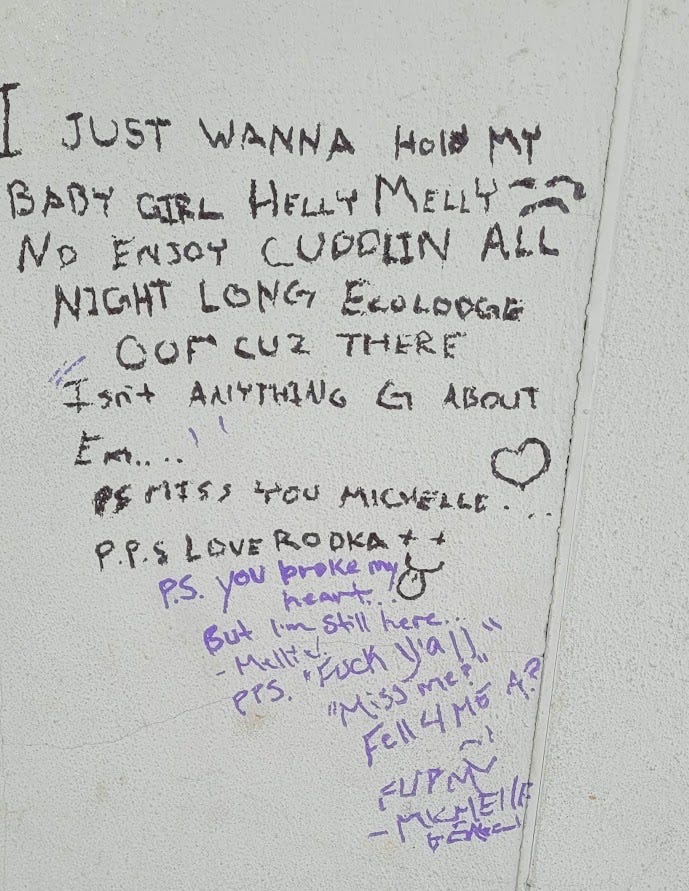 I JUST WANNA HOlD MY
BABY GIRL HELLY MELLY
NO ENJOY CUDDLIN ALL
NIGHT LONG ECOLODGE
OOF CUZ THERE
"Isn't ANYTHING G ABOUT
Em...."
PS MISS YOU MICHELLE...
P.P.S LOVE RODKA ++
P.S. you broke my
heart...
But I'm still here...
PPS. "Fuck y'all"
"Miss me?"
Fell 4 ME A?
FUPMV